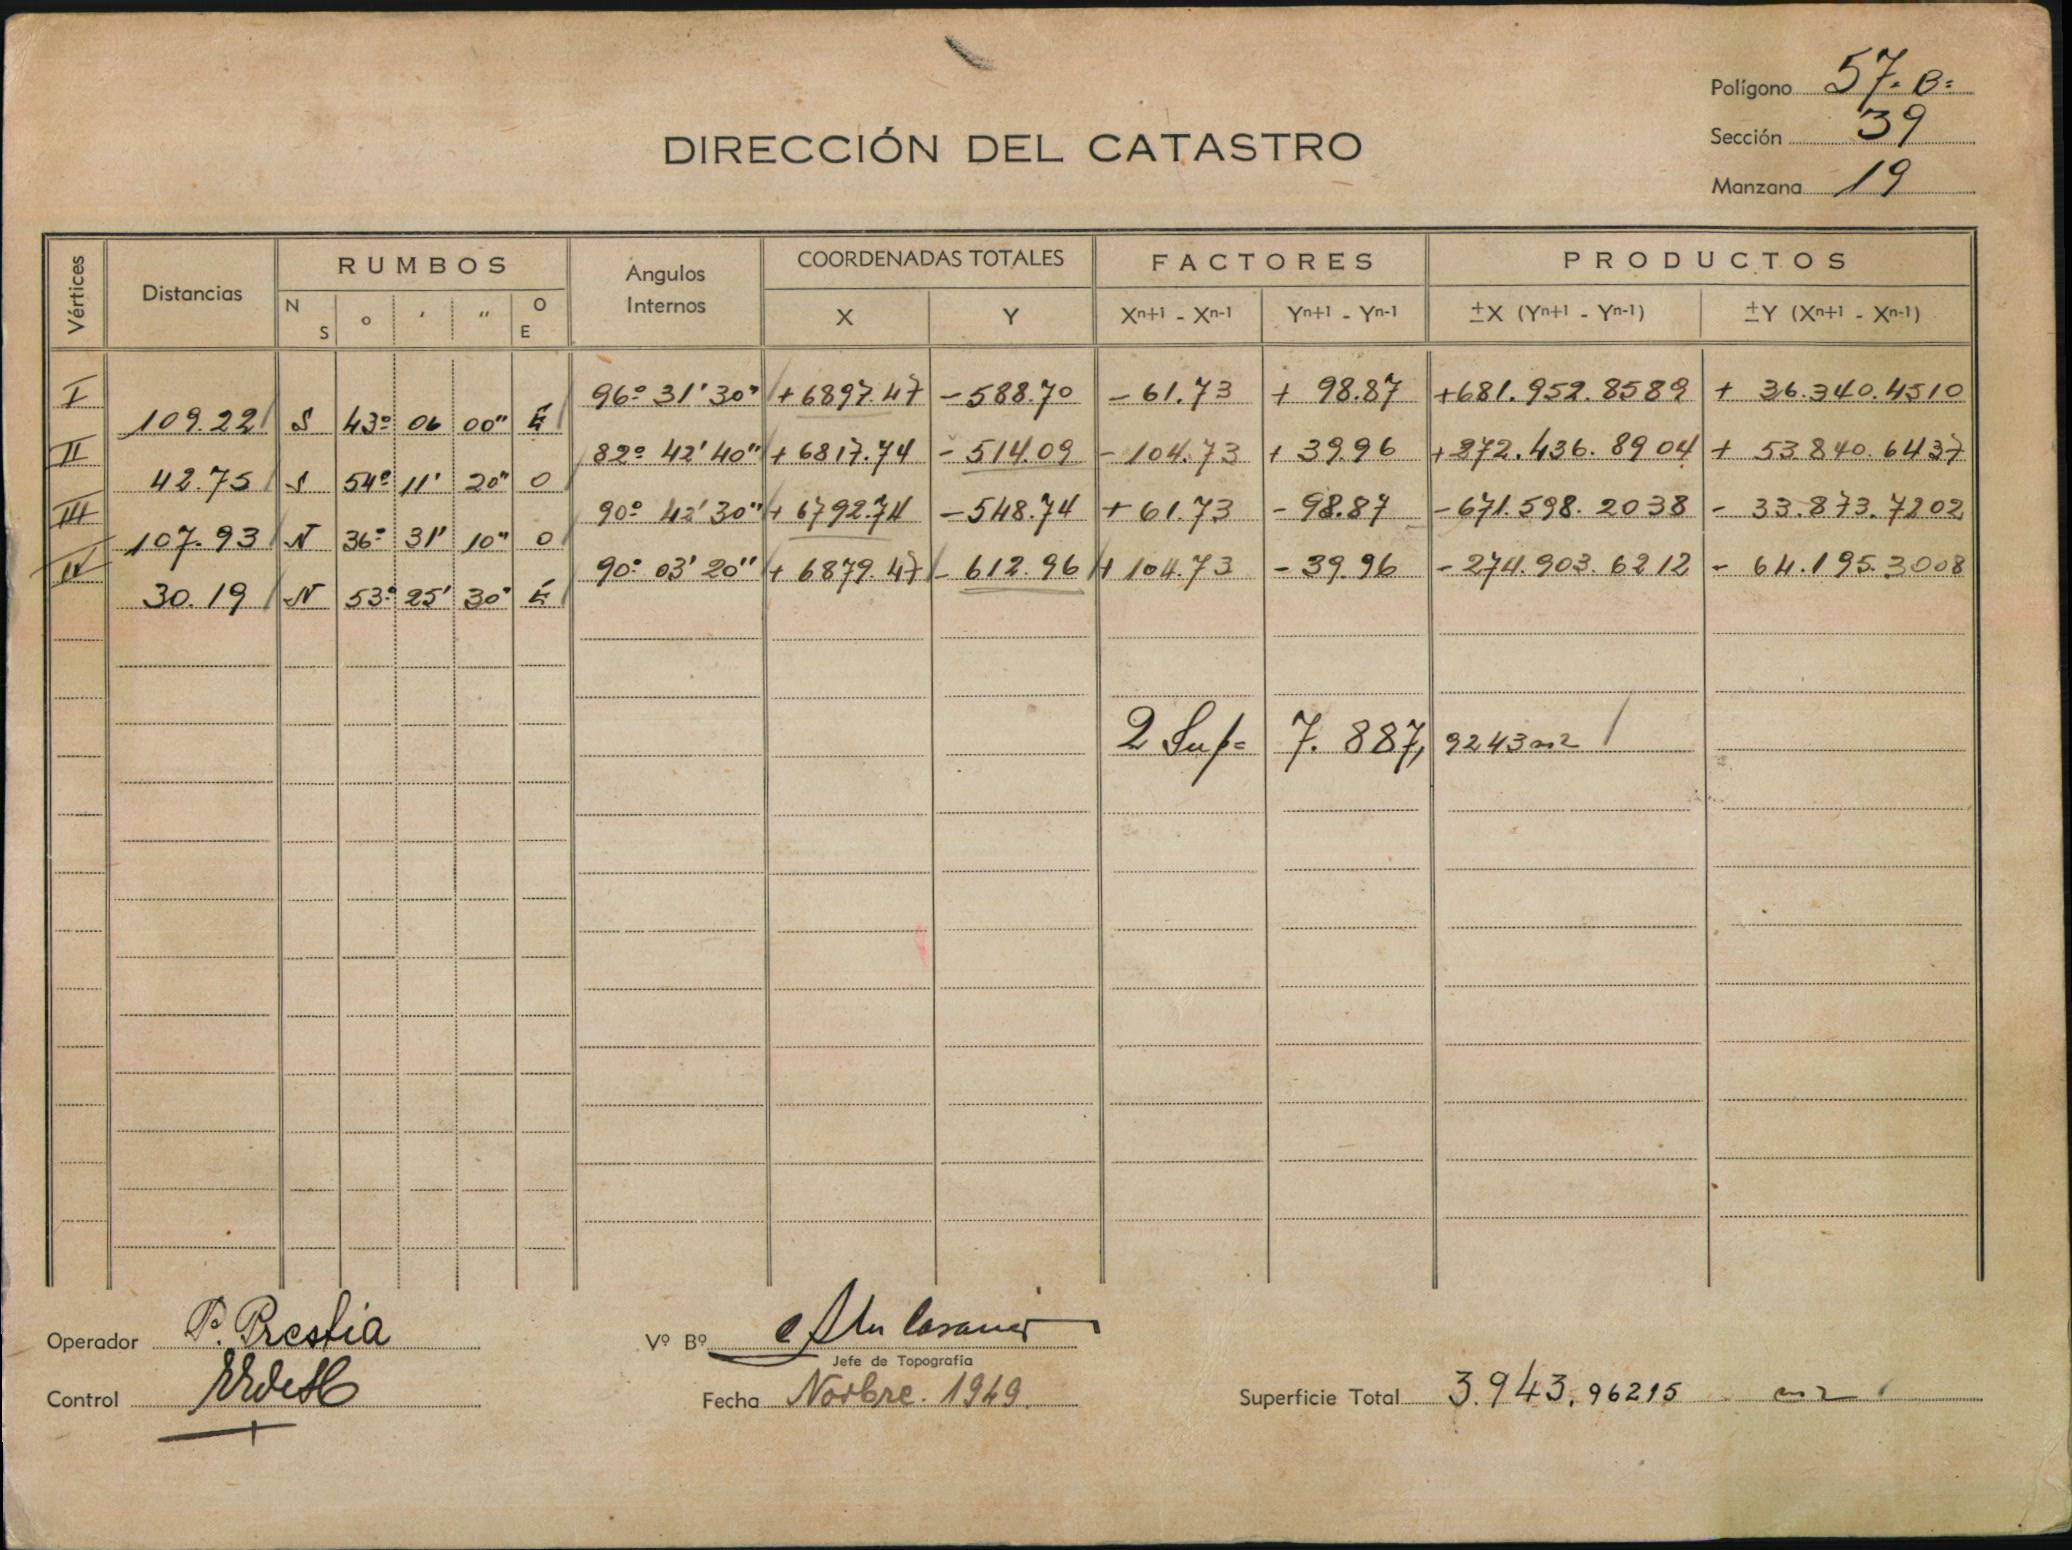 Polígono 57. B=
Sección 39
Manzana 19
DIRECCIÓN DEL CATASTRO
Vértices Distancias RUMBOS Angulos Internos COORDENADAS TOTALES FACTORES PRODUCTOS
N S o ' " O E X Y Xn+1 - Xn-1 Yn+1 - Yn-1 ±X (Yn+1 - Yn-1) ±Y (Xn+1 - Xn-1)
I 96º 31' 30" +6897.47 -588.70 -61.73 + 98.87 +681.952.8589 + 36.340.4510
109.22 S 43º 06 00" E
II 82º 42' 40" + 6817.74 - 514.09 -104.73 + 39.96 +272.436.8904 + 53.840.6437
42.75 S 54º 11' 20" O
III 90º 42' 30" + 6792.74 -548.74 + 61.73 - 98.87 -671.598.2038 - 33.873.7202
107.93 N 36º 31' 10" O
IV 90º 03' 20" + 6879.47 - 612.96 + 104.73 - 39.96 - 274.903.6212 - 64.195.3008
30.19 N 53º 25' 30" E
2 Sup= 7.887,9243 m2
Operador P. Prestia
Vº Bº
Jefe de Topografía
Control
Fecha Novbre. 1949.
Superficie Total 3.943,96215 m2